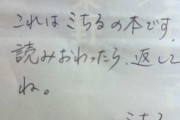 これはミちるの本です。
読みおわったら、返して
ね。
ミちる